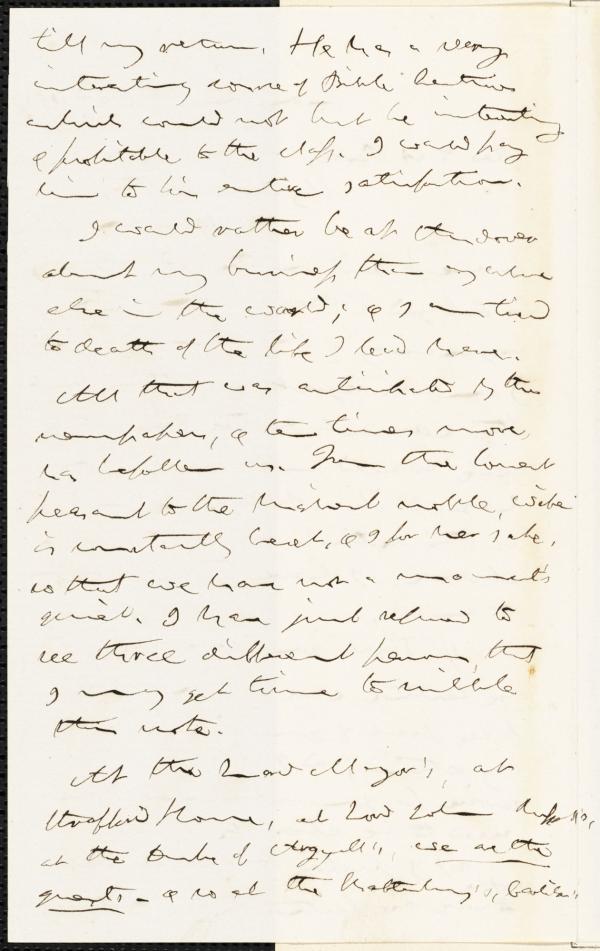 till my return. He has a very
interesting course of Bible lectures
which could not but be interesting
& profitable to the class. I would pay
him to his entire satisfaction.
I would rather be at Andover
about my business than anywhere
else in the world; & I am tired
to death of the life I lead here.
All that was anticipated by the
newspapers, & ten times more,
has befallen us. From the lowest
peasant to the highest noble, wife
is constantly beset, & I for her sake,
so that we have not a moment's
quiet. I have just refused to
see three different persons, that
I may get time to scribble
this note.
At the Lord Mayor's, at
Stafford House, at Lord John Russell's,
at the Duke of Argyll's, we are the
guests - & so at the